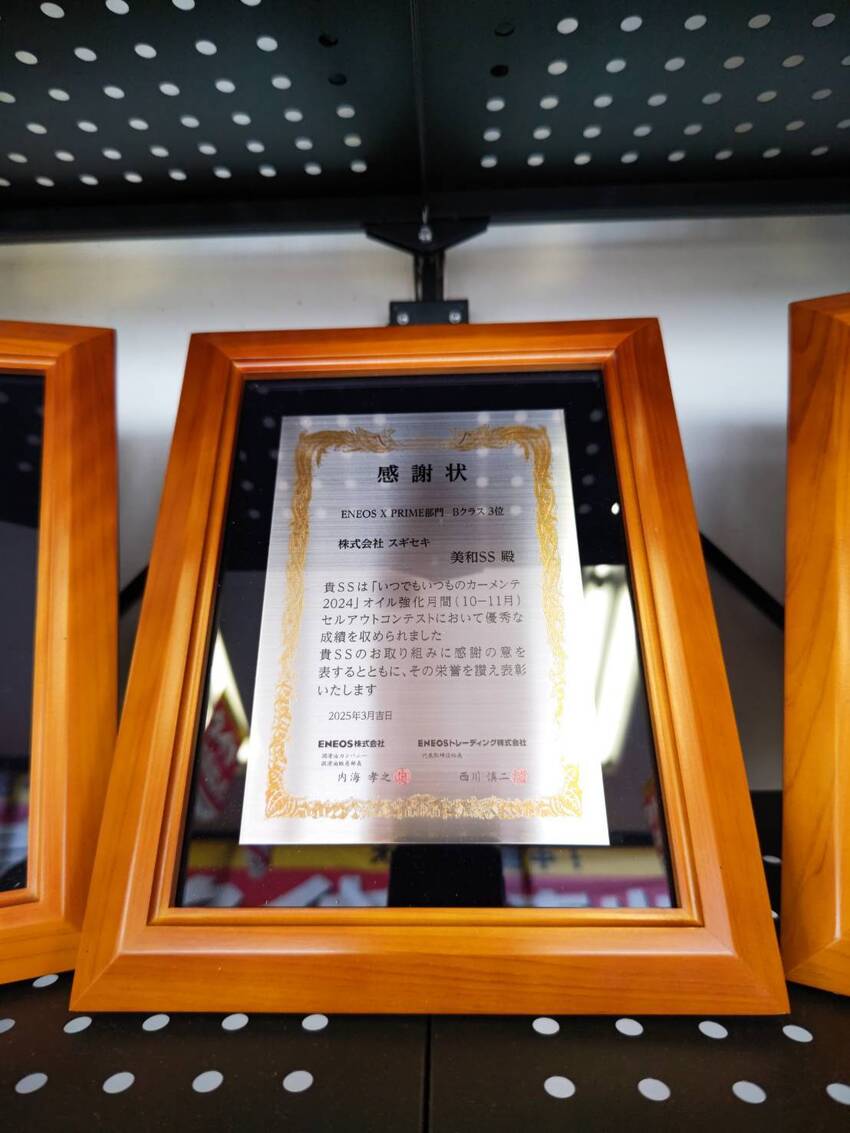 感謝状
ENEOS X PRIME部門 Bクラス 3位
株式会社 スギセキ
美和SS 殿
貴SSは「いつでもいつものカーメンテ
2024」オイル強化月間(10−11月)
セルアウトコンテストにおいて優秀な
成績を収められました
貴SSのお取り組みに感謝の意を
表するとともに、その栄誉を讃え表彰
いたします
2025年3月吉日
ENEOS株式会社
潤滑油カンパニー
潤滑油販売部長
内海 孝之
ENEOSトレーディング株式会社
代表取締役社長
西川 慎二